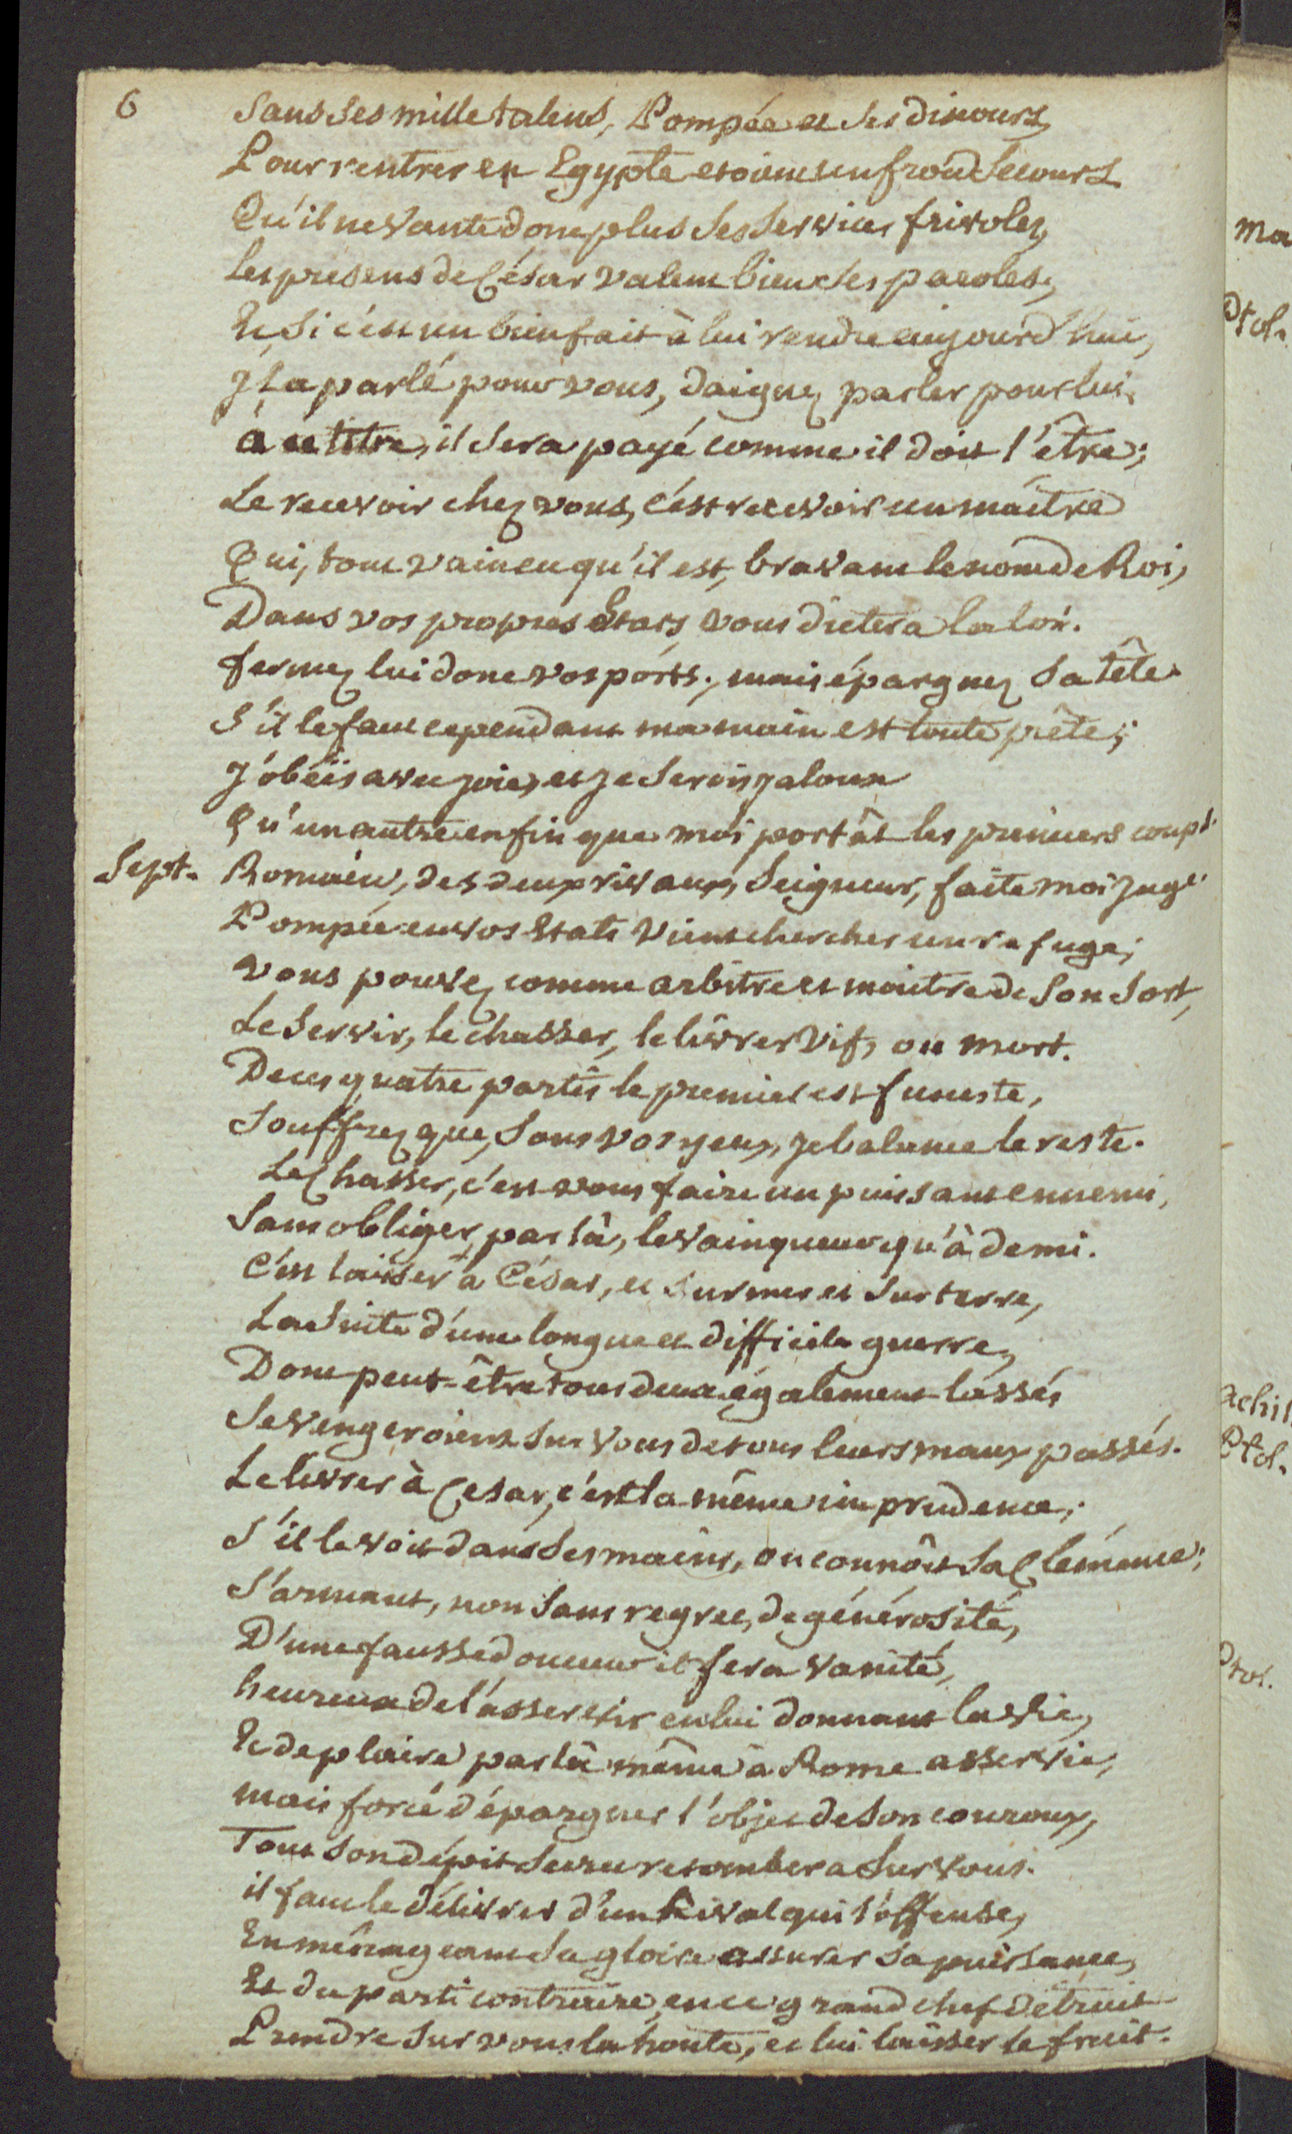 6
Sans ses mille talens, Pompée et ses discours,
Pour rentrer en Egypte etoient un froid secours
Qu'il ne vante donc plus ses services frivoles,
Les presens de César valent bien ses paroles;
Et si c'est un bienfait à lui rendre aujourd'hui,
Il a parlé pour vous, daignez parler pour lui,
à ce titre, il sera payé comme il doit l'être;
Le recevoir chez vous, c'est recevoir un maître
Qui, tout vaincu qu'il est, bravant le nom de Roi,
Dans vos propres Etats, vous dictera la loi.
fermez lui donc vos ports, mais épargnez sa tête
S'il le faut cependant ma main est toute prête;
J'obéis avec joie, et je serois jaloux
Qu'un autre enfin que moi portât les premiers coups.
Sept. Romain, des deux rivaux, Seigneur, faite moi juge.
Pompée en vos Etats vient chercher un refuge;
Vous pouvez, comme arbitre et maitre de son sort,
Le servir, le chasser, le livrer vif, ou mort.
De ces quatre partis le premier est funeste,
Souffrez que, sous vos yeux, je balance le reste.
Le Chasser, c'est vous faire un puissant ennemi,
Sans obliger, par là, le vainqueur qu'à demi.
C'est laisser à César, et sur mer et sur terre,
La suite d'une longue et difficile guerre,
Dont peut-être tous deux également lassés
Se vengeroient sur vous de tous leurs maux passés.
Le livrer à Cesar, c'est la même imprudence;
S'il le voit dans ses mains, on connôit sa Clémence;
S'armant, non sans regret, de générosité,
D'une fausse douceur il fera vanité,
heureux de l'asservir en lui donnant la vie,
Et de plaire par là même à Rome asservie,
mais forcé d'épargner l'objet de son couroux,
Tout son dépit secret retombera sur vous.
il faut le délivrer d'un Rival qui l'offense,
En ménageant sa gloire assurer sa puissance,
Et du parti contraire, en ce grand chef détruit
Prendre sur vous la honte, et lui laisser le fruit.
ma
Ptol.
achil
Ptol.
Ptol.